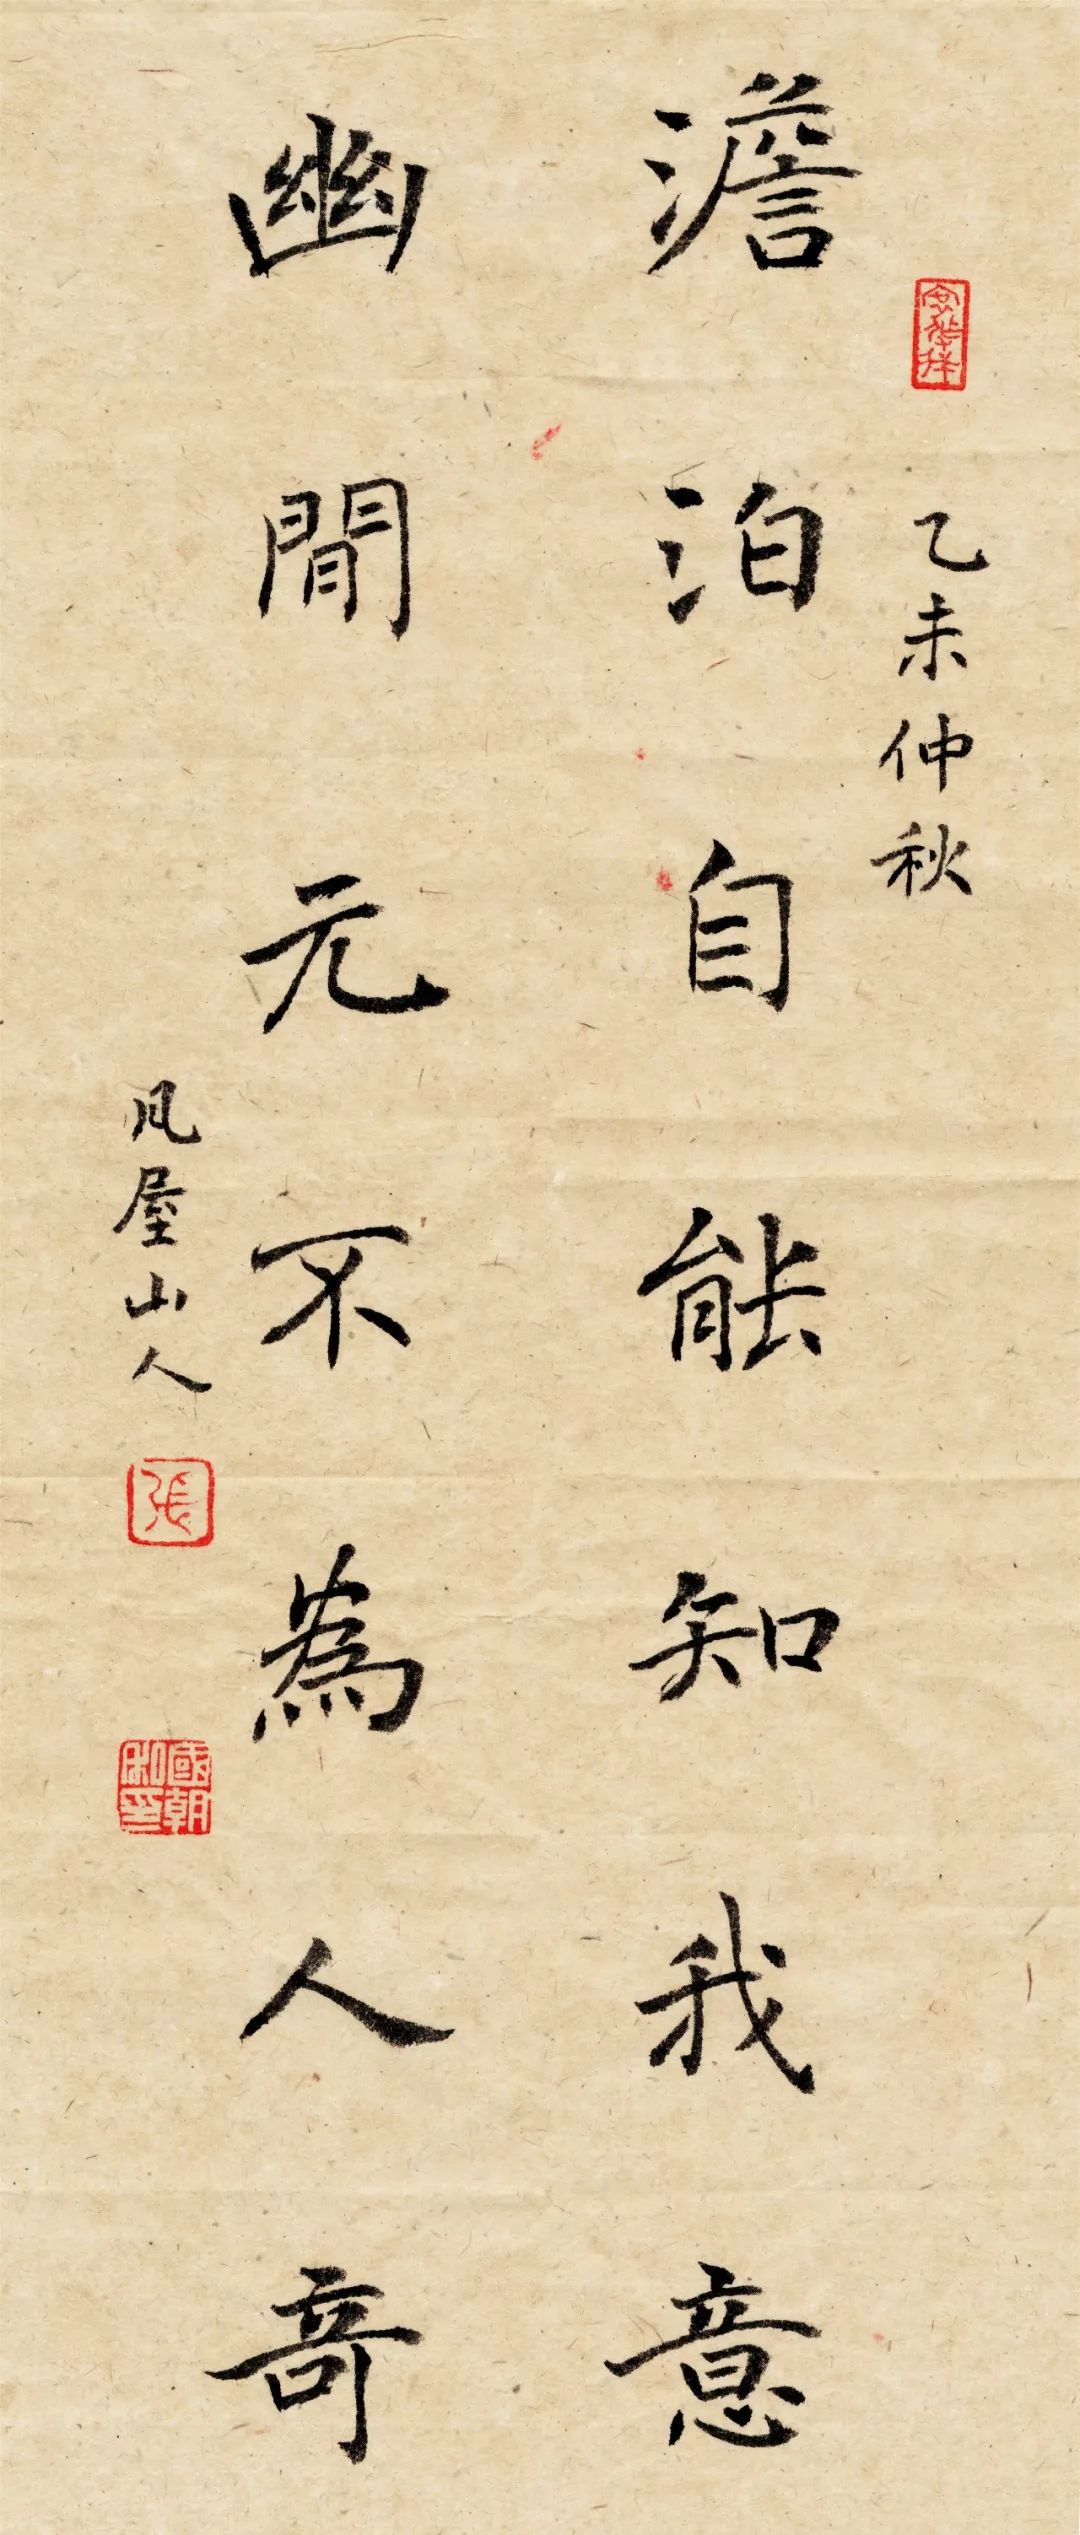 乙未仲秋
澹泊自能知我意
幽閒元不為人奇
凡屋山人
張
國朝
私印